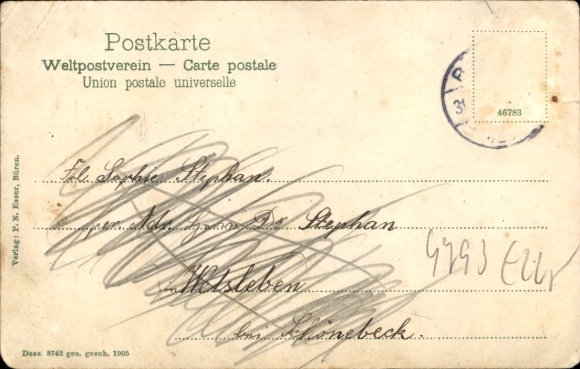 Postkarte
Weltpostverein — Carte postale
Union postale universelle
46783
Frl. Sophie Stephan.
per Adr. Dr Stephan
Welsleben
bei Schönebeck.
4793
Verlag: P. N. Esser, Büren.
Dess. 8742 ges. gesch. 1905